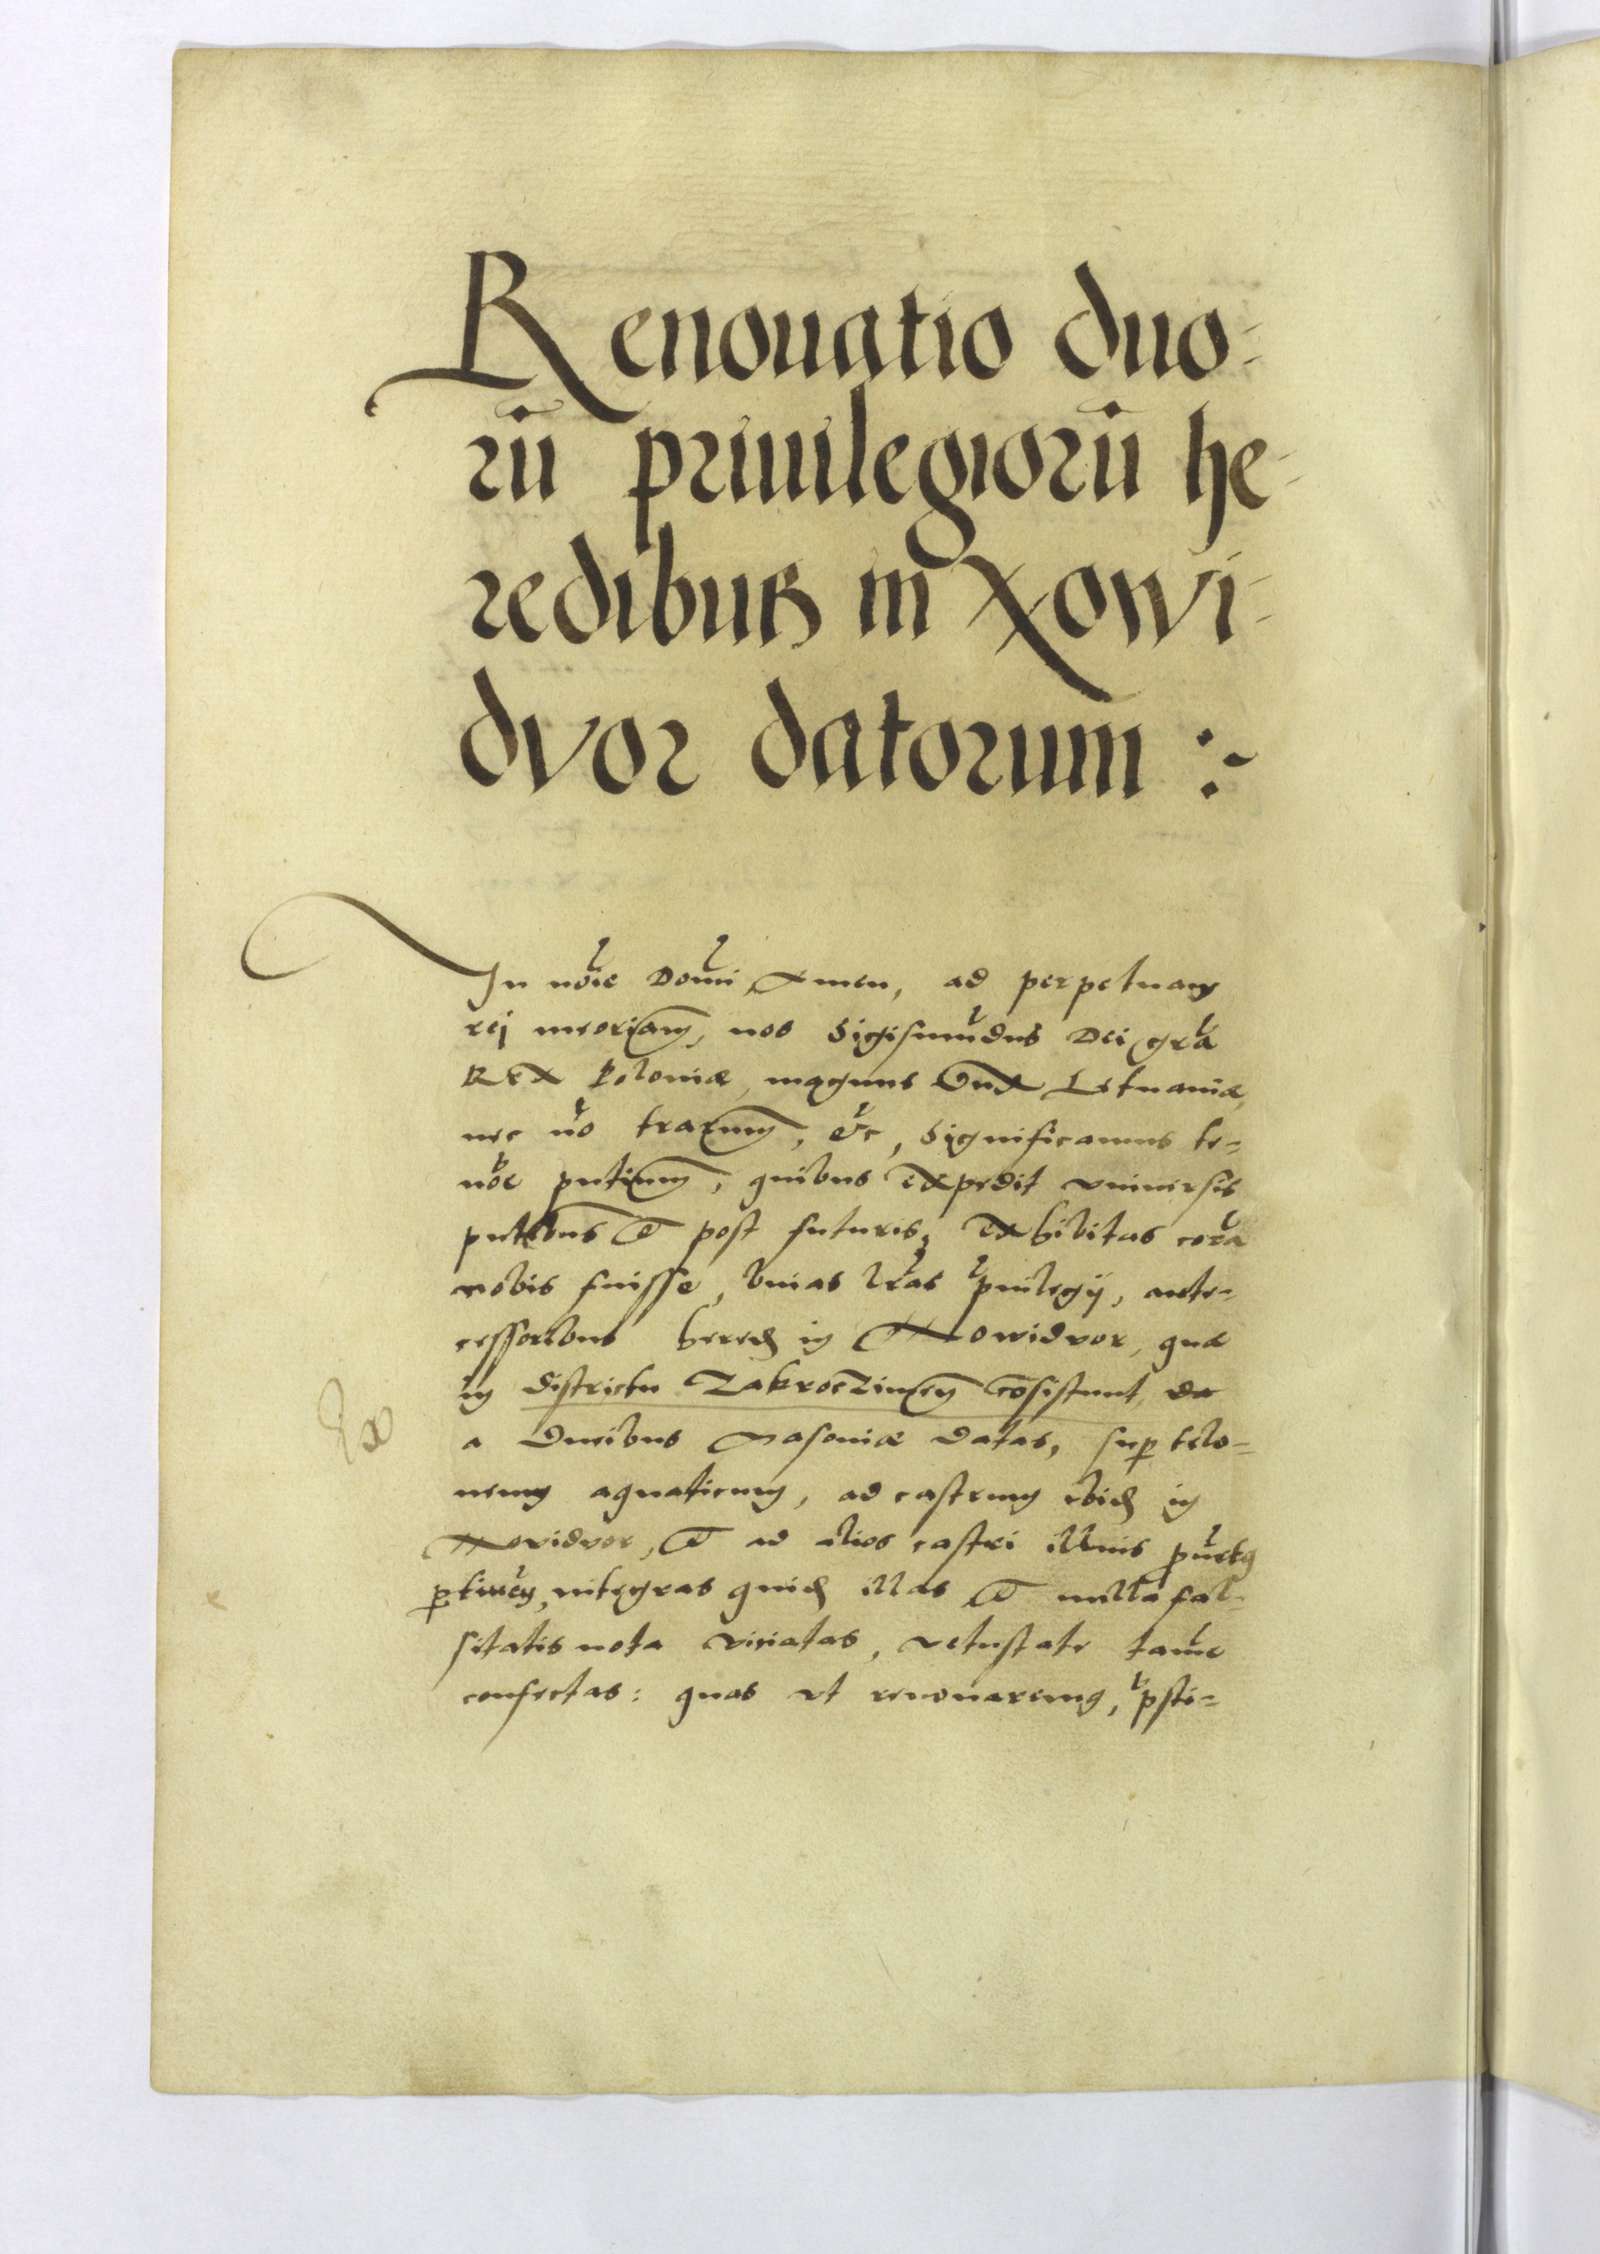 Renouatio duo-
rū priuilegiorū he-
redibus in Nowi-
dvor datorum :~
In noīe Domi Amen, ad perpetuam
rei meoriam, nos Sigismūdus Dei gra
Rex Poloniæ, magnus Dux Lituaniæ,
nec no trarum, etc, Significamus te-
nōe pntium, quibus expedit vniuersis
pntibus et post futuris, exhibitas corā
nobis fuisse, binas lras puilegij, ante-
cessoribus hered in Nowidvor, quæ
in districtu Zakroczimen cōsistunt da
a Ducibus Masoviæ datas, sup telo-
neum aquaticum, ad castrum ibid in
Nowidvor, et ad alios castri illius puētq
ptinēn, integras quid illas et nulla fal-
sitatis nota viciatas, vetustate tamē
confectas: quas vt renouaremq, psti-
Ex